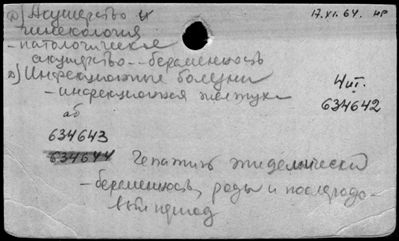 а) Акушерство и
гинекология
17.XI.64. нр
- патологическое
акушерство -- беременность
в) Инфекционные болезни
- инфекционная желтуха
4 иг.
634642
аб
634643
634644
Гепатит эпидемически
- беременность, роды и послеродо-
вый период